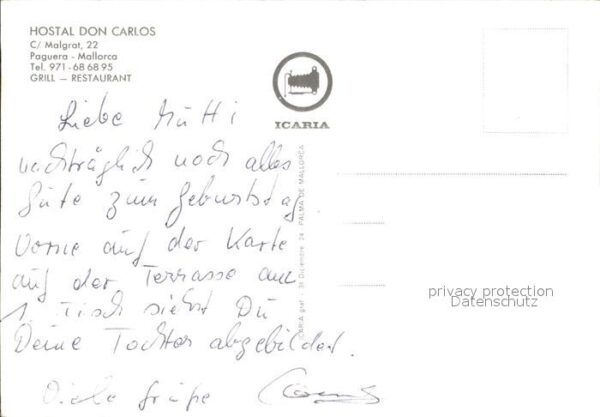 HOSTAL DON CARLOS
C/ Malgrat, 22
Paguera - Mallorca
Tel. 971 - 68 68 95
GRILL — RESTAURANT
ICARIA
Liebe Mutti
nachträglich noch alles
Gute zum Geburtstag
Vorne auf der Karte
auf der Terrasse am
1. Tisch siehst Du
Deine Tochter abgebildet.
Viele Grüße
ICARIA graf. - 31 Diciembre, 24 PALMA DE MALLORCA
privacy protection
Datenschutz